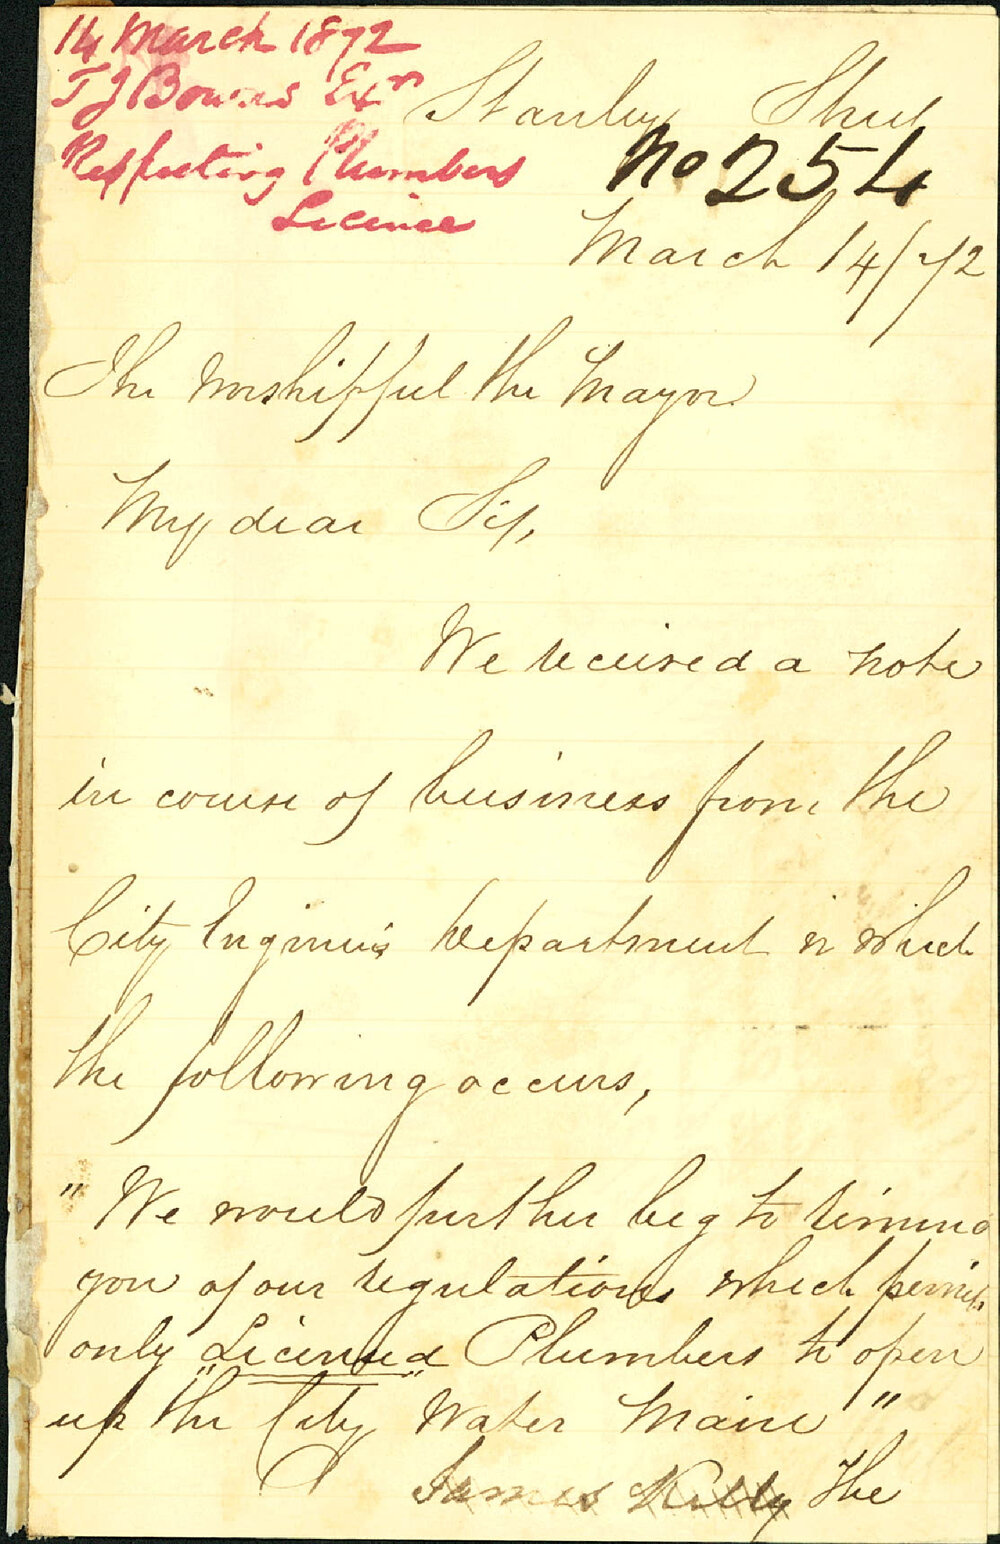 14 March 1872
T J Bowns Esqr
Respecting Plumbers
Licence
Stanley Street
No 254
March 14/72
The Worshipful the Mayor
My dear Sir,
We received a note
in course of business from the
City Engineer's Department in which
the following occurs,
"We would further beg to remind
you of our regulations which permits
only "Licensed" Plumbers to open
up the City Water Main"
James Kelly The